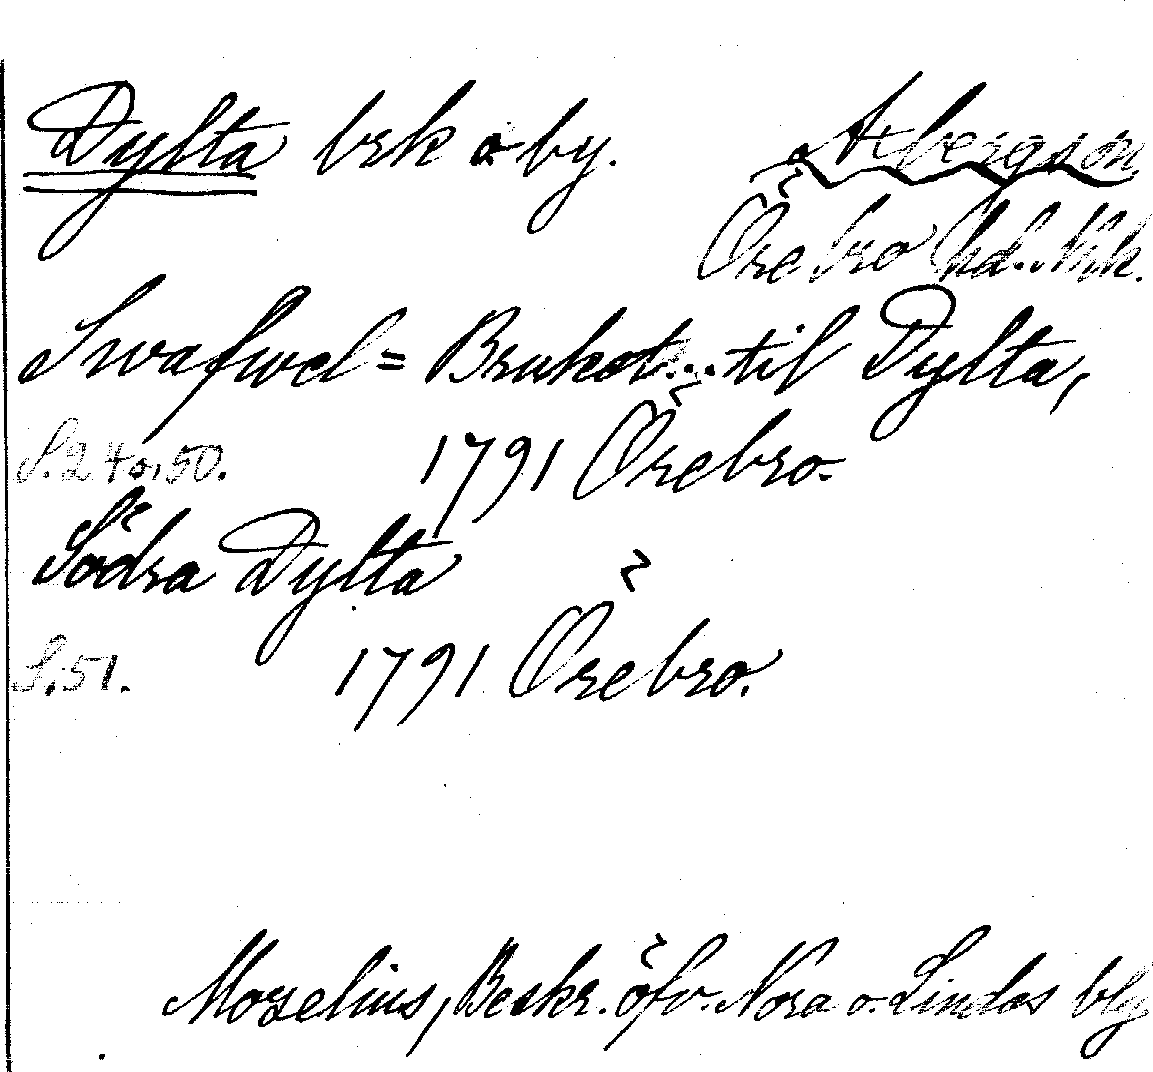 Dylta brk o by. Axbergs sn
Örebro hd. Nrk.
Swafwel= Bruket... til Dylta,
S. 24 o. 50. 1791 Örebro.
Södra Dylta
S. 51. 1791 Örebro.
Moselius, Beskr. öfv. Nora o. Lindes blg